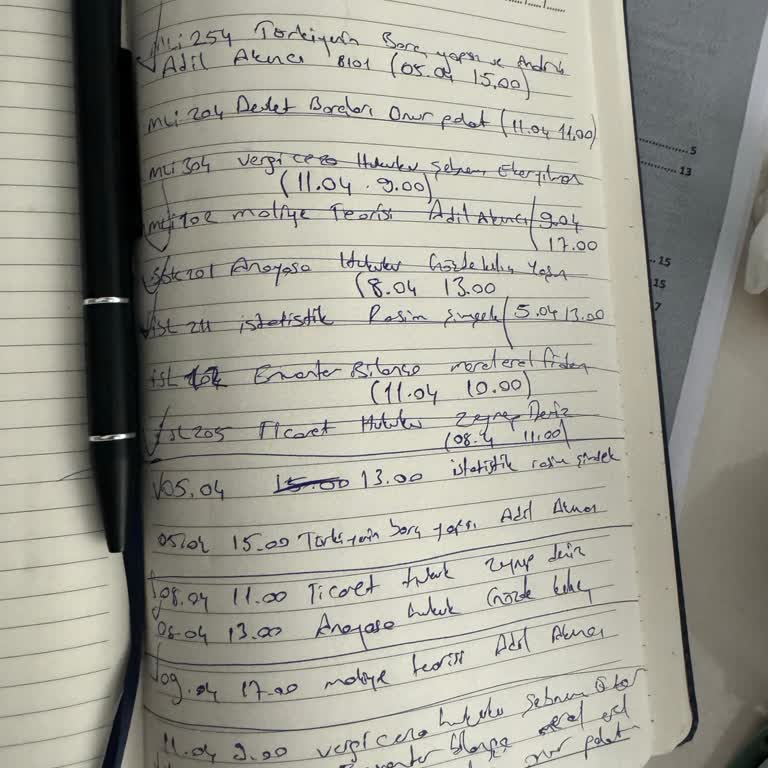 Mli 254 Türkiyenin Borç yapısı ve
Adil Akıncı B101 (05.04 15.00)
mli 204 Devlet Borçları Onur polat (11.04 11.00)
mli 304 vergi ceza Hukuku Şebnem
(11.04 . 9.00)
mli 202 maliye Teorisi Adil Akıncı (9.04
17.00
201 Anayasa Hukuku Gözde kılıç Yaşın
(8.04 13.00
ist 211 istatistik Rasim şimşek (5.04 13.00
Envanter Bilanço
(11.04 10.00)
205 Ticaret Hukuku Zeynep Deniz
(08.4 11.00)
05.04 13.00 istatistik rasim şimşek
05.04 15.00 Türkiyenin borç yapısı Adil Akıncı
08.04 11.00 Ticaret hukuk zeynep deniz
08.04 13.00 Anayasa hukuk Gözde kılıç
09.04 17.00 maliye teorisi Adil Akıncı
11.04 9.00 vergi ceza hukuku Şebnem
onur polat
5
13
15
15
7